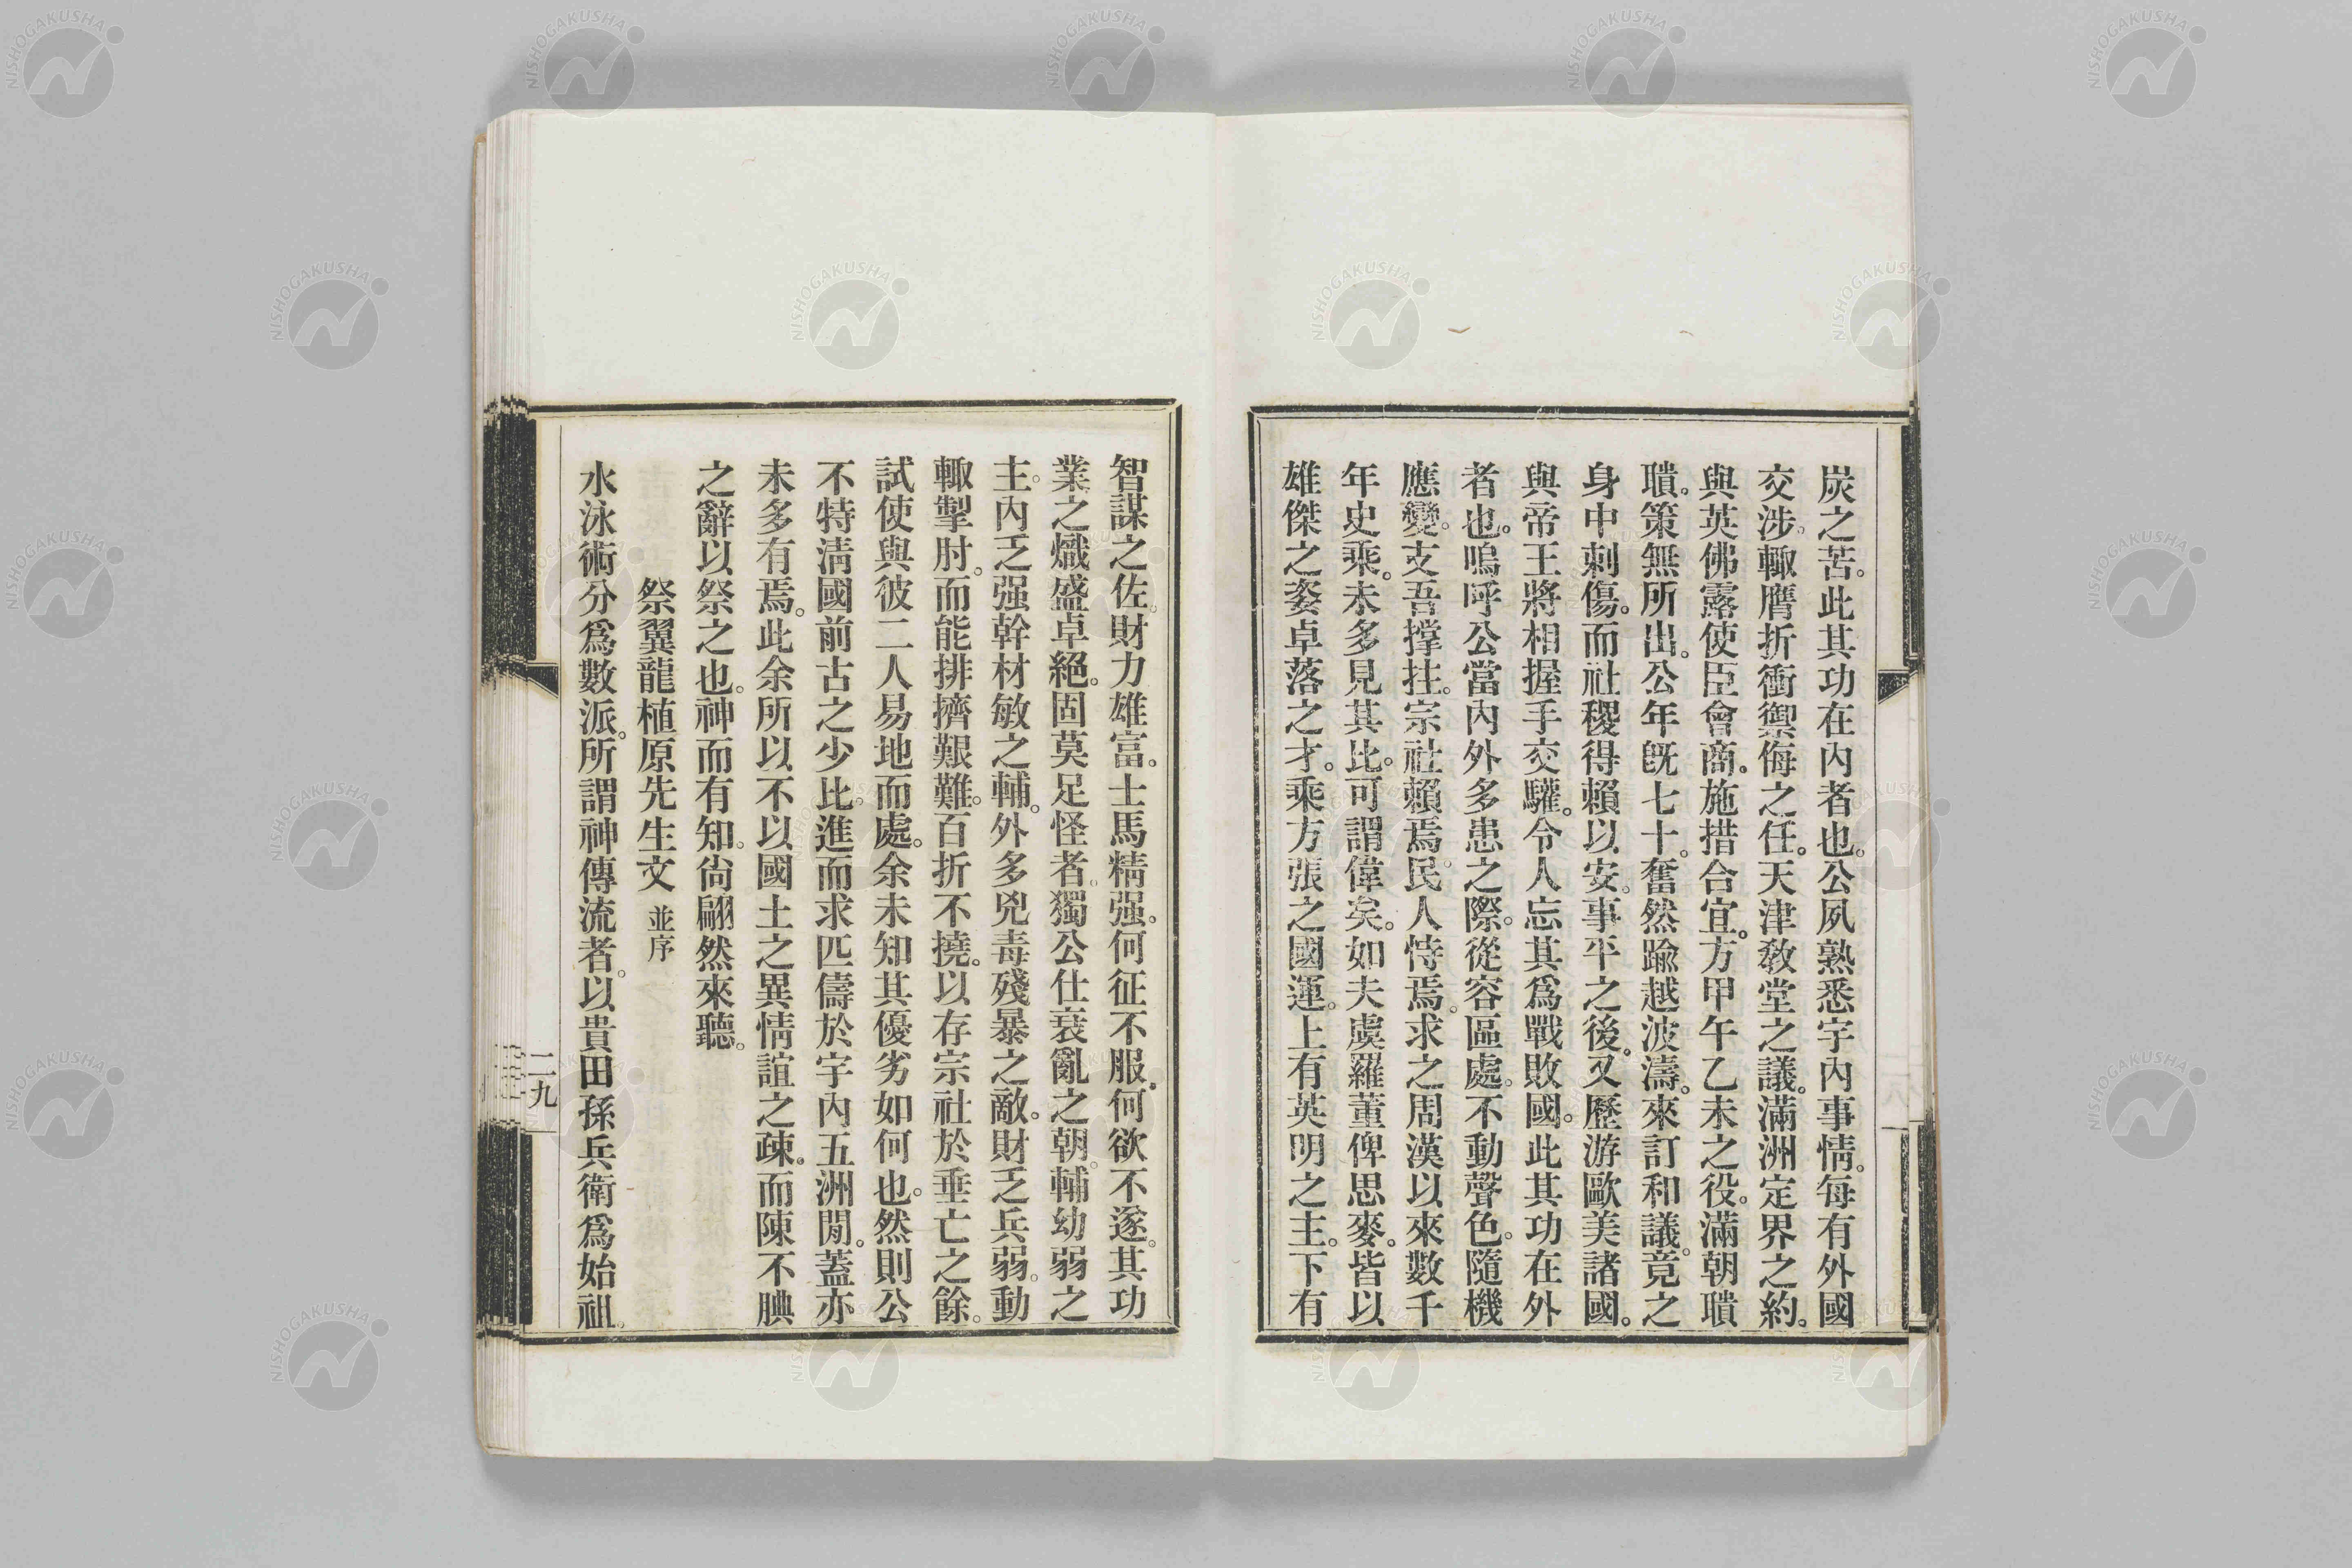 炭之苦。此其功在內者也。公夙熟悉宇內事情。每有外國
交涉。輙膺折衝禦侮之任。天津敎堂之議。滿洲定界之約。
與英佛露使臣會商。施措合宜。方甲午乙未之役。滿朝聵
聵。策無所出。公年旣七十。奮然踰越波濤。來訂和議。竟之
身中刺傷。而社稷得賴以安。事平之後。又歷游歐美諸國。
與帝王將相握手交驩。令人忘其爲戰敗國。此其功在外
者也。嗚呼公當內外多患之際。從容區處。不動聲色。隨機
應變。支吾撑拄。宗社賴焉。民人恃焉。求之周漢以來數千
年史乘。未多見其比。可謂偉矣。如夫虞羅董俾思麥。皆以
雄傑之姿卓落之才。乘方張之國運。上有英明之主。下有
智謀之佐。財力雄富。士馬精强。何征不服。何欲不遂。其功
業之熾盛卓絕。固莫足怪者。獨公仕衰亂之朝。輔幼弱之
主。內乏强幹材敏之輔。外多兇毒殘暴之敵。財乏兵弱。動
輙掣肘。而能排擠艱難。百折不撓。以存宗社於垂亡之餘。
試使與彼二人易地而處。余未知其優劣如何也。然則公
不特淸國前古之少比。進而求匹儔於宇內五洲閒。蓋亦
未多有焉。此余所以不以國土之異情誼之疎。而陳不腆
之辭以祭之也。神而有知。尙翩然來聽。
祭翼龍植原先生文 並序
水泳術分爲數派。所謂神傳流者。以貴田孫兵衛爲始祖。
二九
NISHOGAKUSHA